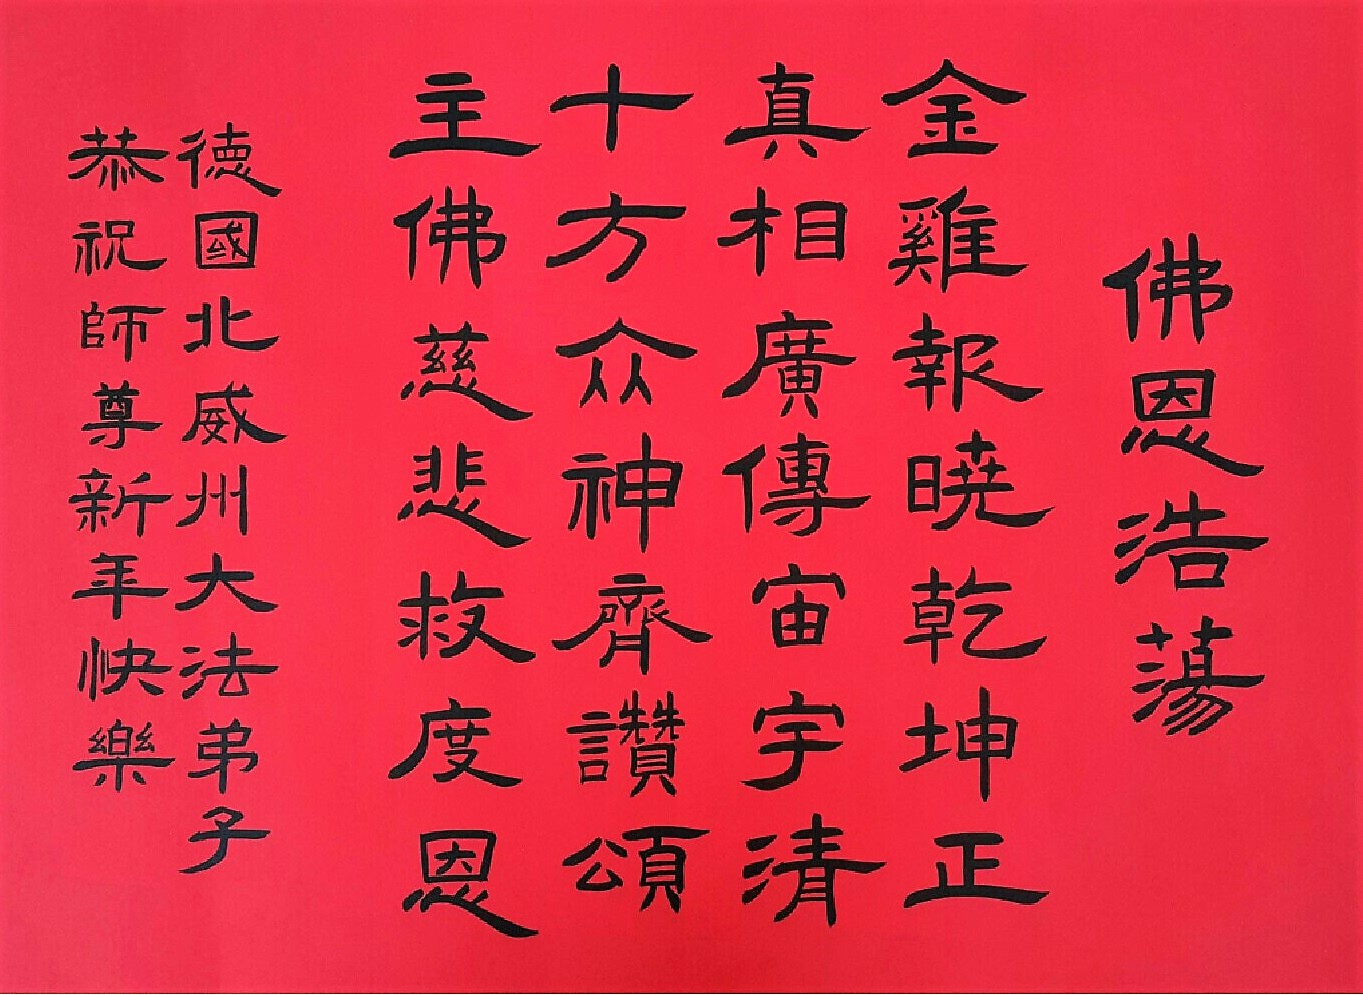 佛恩浩蕩
金雞報曉乾坤正
真相廣傳宙宇清
十方众神齊讚頌
主佛慈悲救度恩
德國北威州大法弟子
恭祝師尊新年快樂